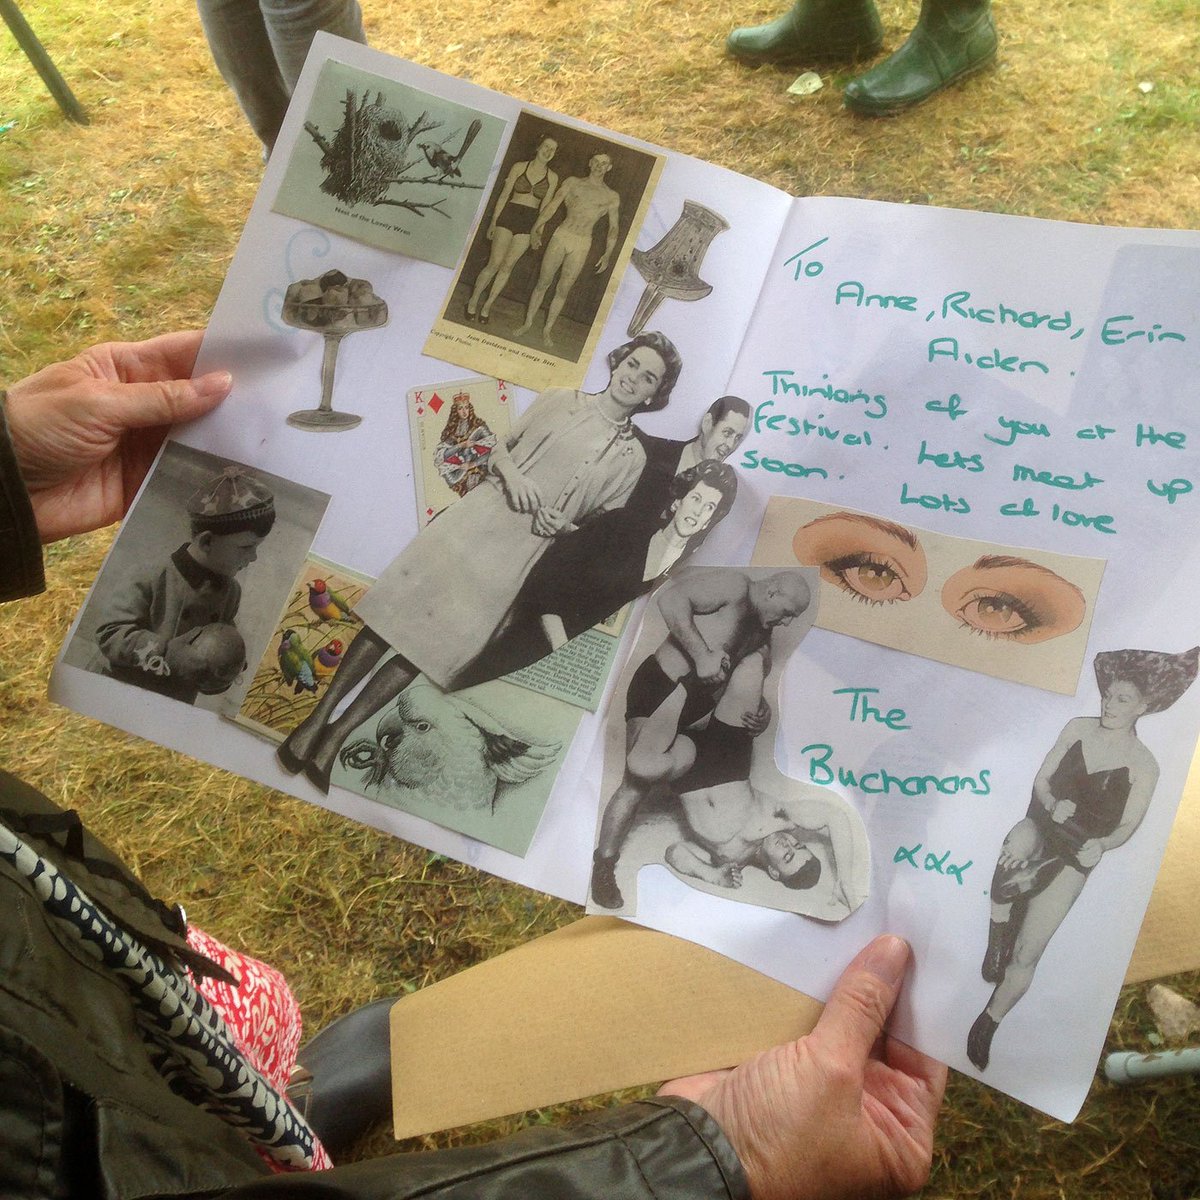 Nest of the Lovely Wren
Jean Davidson and George Best.
Copyright Photos.
K
K
To
Anne, Richard, Erin
Aiden.
Thinking of you at the
festival. Lets meet up
soon. Lots of love
The
Buchanans
xxx.